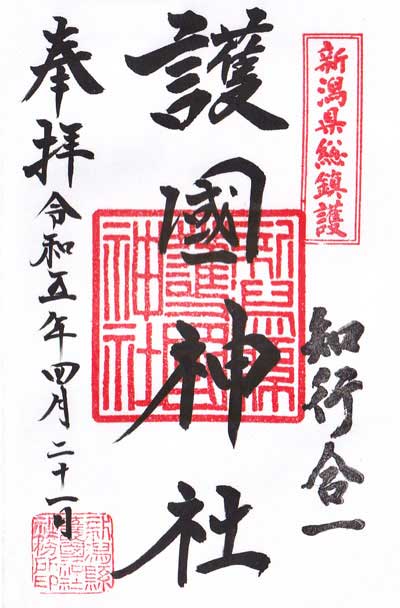 新潟県総鎮護
知行合一
護國神社
新潟縣
護國
神社
奉拝
令和五年四月二十一日
新潟縣
護國神社
社務所印